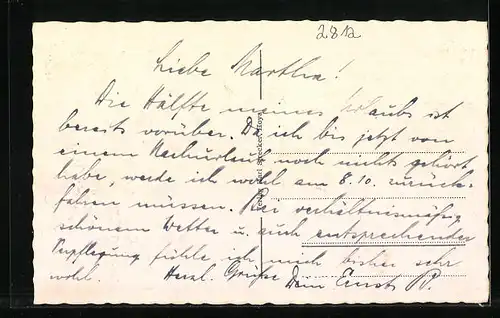 2812
Liebe Martha!
Die Hälfte meines Urlaubs ist
bereits vorüber. Da ich bis jetzt von
einem Nachurlaub noch nichts gehört
habe, werde ich wohl am 8.10. zurück-
fahren müssen. Bei verhältnismäßig
schönem Wetter u. auch entsprechender
Verpflegung fühle ich mich bisher sehr
wohl. Herzl. Grüße Dein Ernst B.